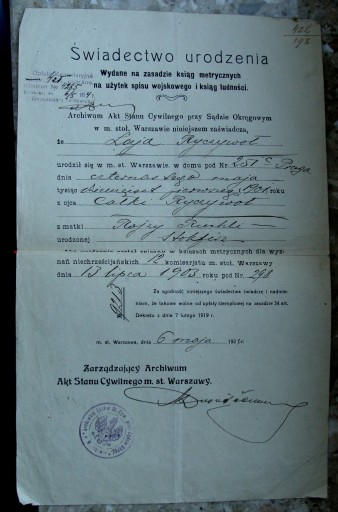 426
196
Świadectwo urodzenia
Wydane na zasadzie ksiąg metrycznych
na użytek spisu wojskowego i ksiąg ludności.
Archiwum Akt Stanu Cywilnego przy Sądzie Okręgowym
w m. stoł. Warszawie niniejszem zaświadcza,
że Łaja Ryczywoł
urodził się w m. st. Warszawie, w domu pod Nr. 251 c Praga
dnia czternastego maja
tysiąc dziewięćset pierwszego 1901 roku
z ojca Calki Ryczywoł
z matki Rojzy Ruchli
urodzonej
wpisany w księgach metrycznych dla wyznań
niechrześcijańskich 12 komisarjatu m. stoł. Warszawy
dnia 13 lipca 1903 roku pod Nr. 298
Za zgodność niniejszego świadectwa świadczę i nadmieniam,
że takowe wolne od opłaty stemplowej na zasadzie 24 art.
Dekretu z dnia 7 lutego 1919 r.
m. st. Warszawa, dnia 6 maja
Zarządzający Archiwum
Akt Stanu Cywilnego m. st. Warszawy.